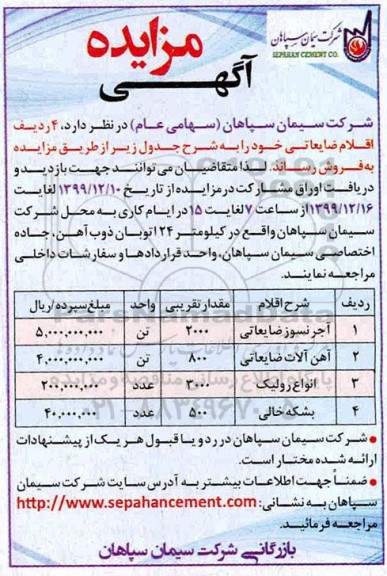 شرکت سیمان سپاهان
SEPAHAN CEMENT CO.
مزایده
آگهی
شرکت سیمان سپاهان (سهامی عام) در نظر دارد، ۴ ردیف
اقلام ضایعاتی خود را به شرح جدول زیر از طریق مزایده
به فروش رساند. لذا متقاضیان می توانند جهت بازدید و
دریافت اوراق مشارکت در مزایده از تاریخ ۱۳۹۹/۱۲/۱۰ لغایت
۱۳۹۹/۱۲/۱۶ از ساعت ۷ لغایت ۱۵ در ایام کاری به محل شرکت
سیمان سپاهان واقع در کیلومتر ۲۴ اتوبان ذوب آهن، جاده
اختصاصی سیمان سپاهان، واحد قراردادها و سفارشات داخلی
مراجعه نمایند.
ردیف شرح اقلام مقدار تقریبی واحد مبلغ سپرده/ریال
۱ آجر نسوز ضایعاتی ۲۰۰۰ تن ۵,۰۰۰,۰۰۰,۰۰۰
۲ آهن آلات ضایعاتی ۸۰۰ تن ۴,۰۰۰,۰۰۰,۰۰۰
۳ انواع رولیک ۳۰۰۰ عدد ۲۰۰,۰۰۰,۰۰۰
۴ بشکه خالی ۵۰۰ عدد ۴۰,۰۰۰,۰۰۰
• شرکت سیمان سپاهان در رد و یا قبول هر یک از پیشنهادات
ارائه شده مختار است.
• ضمناً جهت اطلاعات بیشتر به آدرس سایت شرکت سیمان
سپاهان به نشانی: http://www.sepahancement.com
مراجعه فرمائید.
بازرگانی شرکت سیمان سپاهان